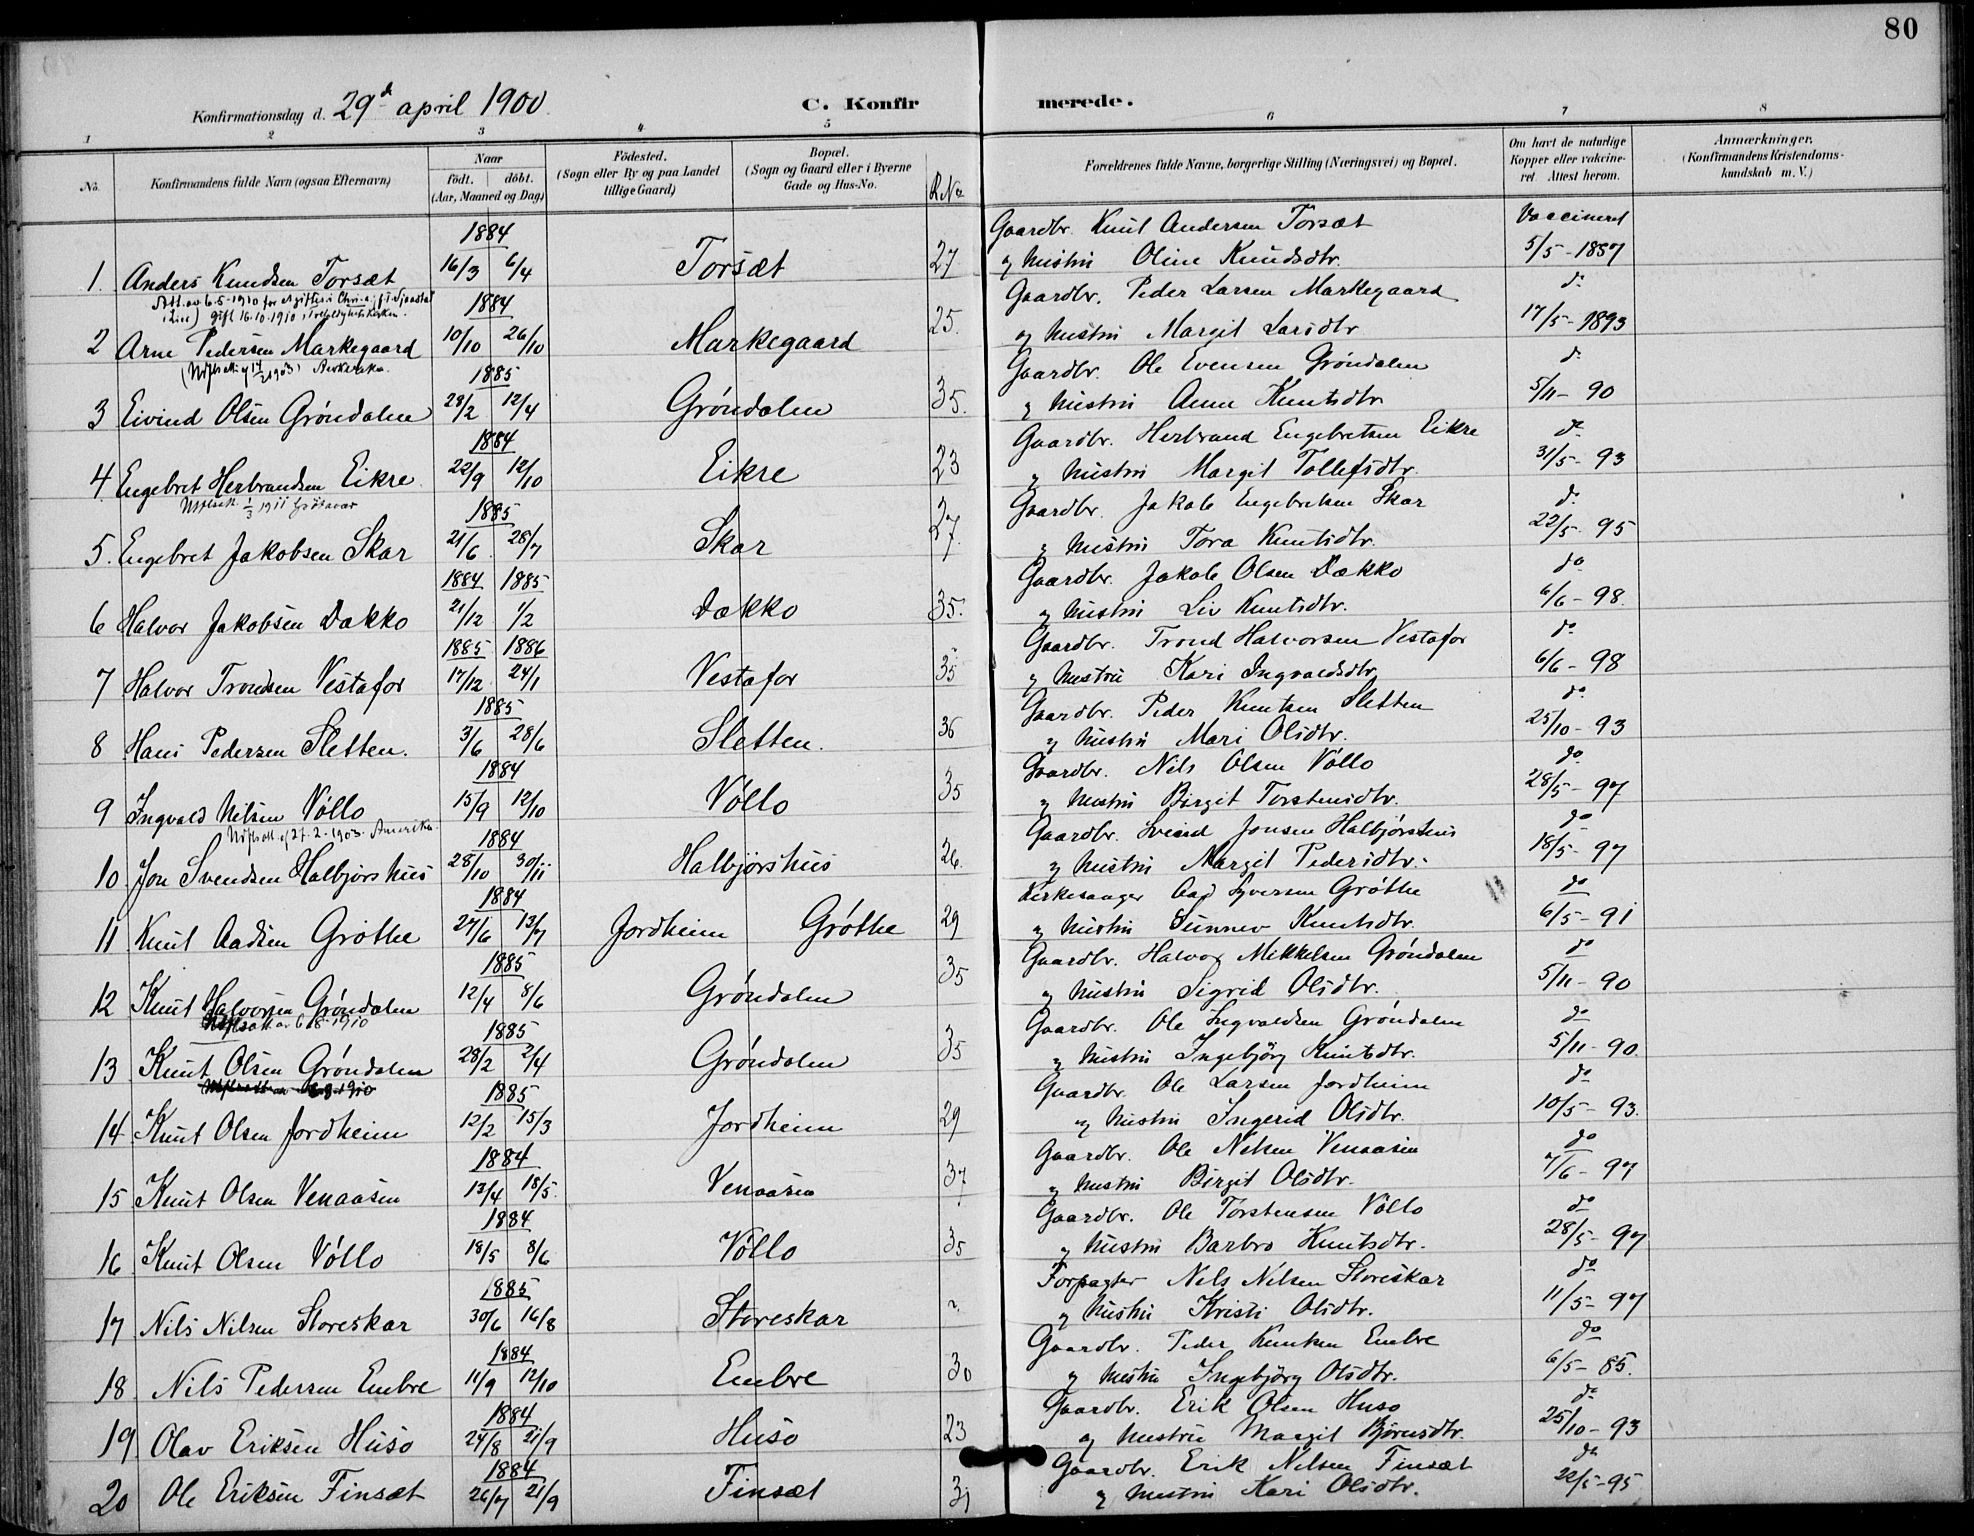 80
Konfirmationsdag d. 29de april 1900. C. Konfirmerede.
1 2 3 4 5 6 7 8
No. Konfirmandens fulde Navn (ogsaa Efternavn) Naar födt. döbt. (Aar, Maaned og Dag) Födested. (Sogn eller By og paa Landet tillige Gaard) Bopæl. (Sogn og Gaard eller i Byerne Gade og Hus-No. R.No Forældrenes fulde Navne, borgerlige Stilling (Næringsvei) og Bopæl. Om havt de naturlige Kopper eller vakcineret. Attest herom. Anmærkninger. (Konfirmandens Kristendomskundskab m. V.)
1884 Gaardbr. Knut Andersen Torsæt Vaccineret
1. Anders Knudsen Torsæt 16/3 6/4 Torsæt 27 og hustru Oline Knudsdtr. 5/5-1887
Att. av 6.5.1910 for at giftes i
gift 16.10.1910
1884 Gaardbr. Peder Larsen Markegaard do
2 Arne Pedersen Markegaard 10/10 26/10 Markegaard 25. og hustru Margit Larsdtr 17/5-1893
1885 Gaardbr. Ole Evensen Gröndalen do
3 Eivind Olsen Gröndalen 28/2 12/4 Gröndalen 35. og hustru Anne Knutsdtr 5/11-90
1884 Gaardbr. Herbrand Engebretsen Eikre do
4 Engebret Herbrandsen Eikre 22/9 12/10 Eikre 23 og hustru Margit Tollefsdtr. 31/5-93
1/3 1911
1885 Gaardbr. Jakob Engebretsen Skar do
5. Engebret Jakobsen Skar 21/6 28/7 Skar 27. og hustru Tora Knutsdtr. 22/5-95
1884 1885 Gaardbr. Jakob Olsen Dækko do
6 Halvor Jakobsen Dækko 21/12 1/2 Dækko 35. og hustru Liv Knutsdtr. 6/6-98.
1885 1886 Gaardbr. Trond Halvorsen Vestafor do
7 Halvor Trondsen Vestafor 17/12 24/1 Vestafor 35 og hustru Kari Ingvaldsdtr 6/6-98
1885 Gaardbr. Peder Knutsen Sletten do
8 Hans Pedersen Sletten. 3/6 28/6 Sletten. 36 og hustru Mari Olsdtr. 25/10-93
1884 Gaardbr. Nils Olsen Völlo do
9 Ingvald Nilsen Völlo 15/9 12/10 Völlo 35 og hustru Birgit Torstensdtr. 28/5-97
2.1903. Amerika
1884 Gaardbr. Svend Jonsen Halbjörshus do
10 Jon Svendsen Halbjörshus 28/10 30/11 Halbjörshus 26. og hustru Margit Pedersdtr. 18/5-97
1884 Kirkesanger Aad Syversen Gröthe do
11 Knut Aadsen Gröthe 27/6 13/7 Jordheim Gröthe 29 og hustru Sunnev Knutsdtr. 6/5-91
1885 Gaardbr. Halvor Mikkelsen Gröndalen do
12 Knut Halvorsen Gröndalen 12/4 8/6 Gröndalen 35 og hustru Sigrid Olsdtr. 5/11-90
av 6.8.1910
1885 Gaardbr. Ole Ingvaldsen Gröndalen do
13 Knut Olsen Gröndalen 28/2 2/4 Gröndalen 35 og hustru Ingebjörg Knutsdtr. 5/11-90.
1885 Gaardbr. Ole Larsen Jordheim do
14 Knut Olsen Jordheim 12/2 15/3 Jordheim 29 og hustru Ingerid Olsdtr. 10/5-93.
1884 Gaardbr. Ole Nilsen Venaasen do
15 Knut Olsen Venaasen 13/4 18/5. Venaasen 37 og hustru Birgit Olsdtr. 7/6-97
1884 Gaardbr. Ole Torstensen Völlo do
16 Knut Olsen Völlo 18/5 8/6 Völlo 35 og hustru Barbro Knutsdtr. 28/5-97
1885 Forpagter Nils Nilsen Storeskar do
17 Nils Nilsen Storeskar 30/6 16/8 Storeskar og hustru Kristi Olsdtr. 11/5-97
1884 Gaardbr. Peder Knutsen Embre do
18 Nils Pedersen Embre 11/9 12/10 Embre 30 og hustru Ingebjörg Olsdtr. 6/5-85.
1884 Gaardbr. Erik Olsen Huso do
19 Olav Eriksen Huso 24/8 21/9 Huso 23 og hustru Margit Björnsdtr. 25/10-93
1884 Gaardbr. Erik Nilsen Finsæt do
20 Ole Eriksen Finsæt 26/7 21/9 Finsæt 31 og hustru Kari Olsdtr. 22/5-95